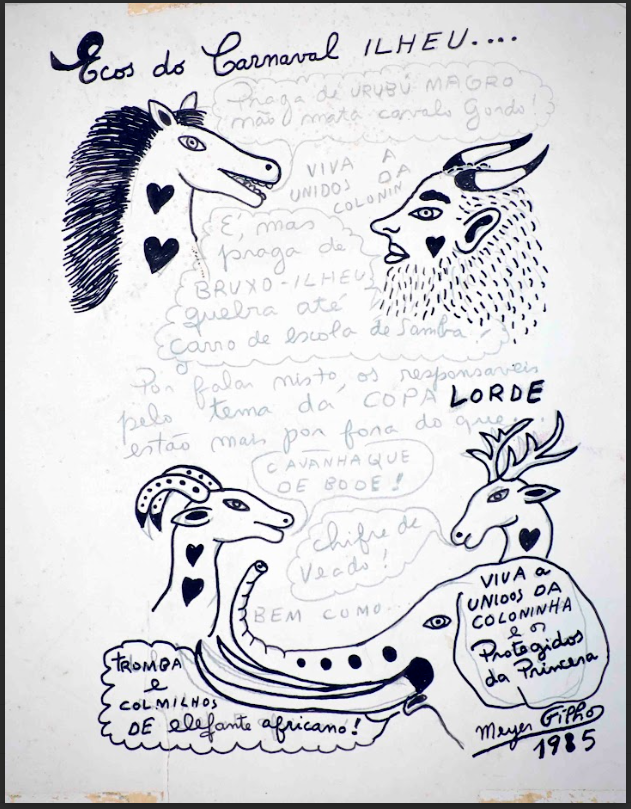 Ecos do Carnaval ILHEU....
Praga de URUBÚ MAGRO
não mata cavalo Gordo!
VIVA A
UNIDOS DA
COLONIN
É, mas
praga de
BRUXO-ILHEU
quebra até
carro de escola de Samba!
Por falar nisto, os responsaveis
pelo tema da COPA LORDE
estão mais por fora do que...
CAVANHAQUE
DE BODE!
chifre de
Veado!
BEM COMO...
VIVA a
UNIDOS DA
COLONINHA
e os
Protegidos
da Princesa
TROMBA
e
COLMILHOS
DE elefante africano!
Meyer Filho
1985